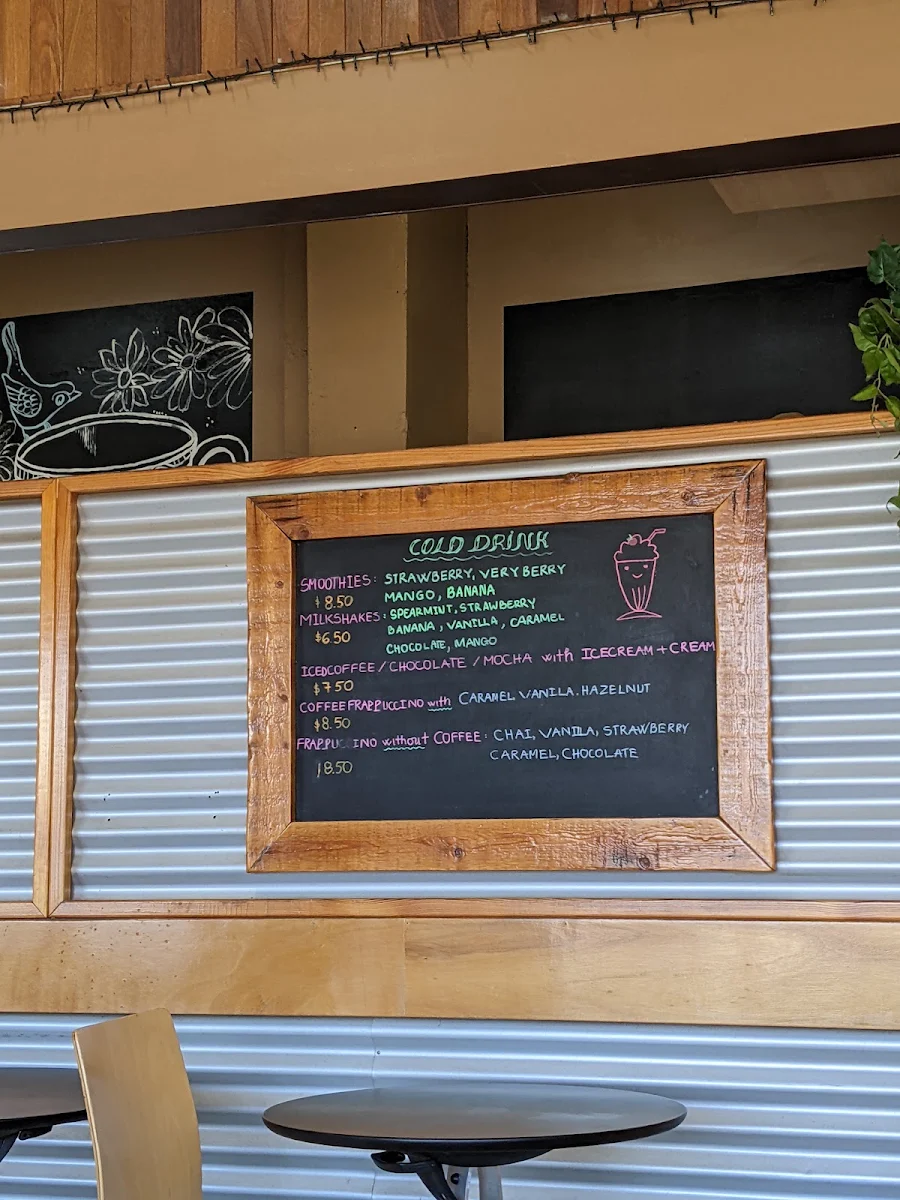 COLD DRINK
SMOOTHIES: STRAWBERRY, VERY BERRY
$8.50 MANGO, BANANA
MILKSHAKES: SPEARMINT, STRAWBERRY
$6.50 BANANA, VANILLA, CARAMEL
CHOCOLATE, MANGO
ICEDCOFFEE / CHOCOLATE / MOCHA with ICECREAM + CREAM
$7.50
COFFEE FRAPPUCCINO with CARAMEL VANILA. HAZELNUT
$8.50
FRAPPUCCINO without COFFEE: CHAI, VANILLA, STRAWBERRY
CARAMEL, CHOCOLATE
$8.50